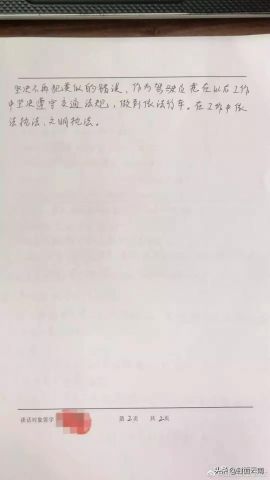 坚决不再犯类似的错误，作为驾驶员我在以后工作
中坚决遵守交通法规，做到依法行车。在工作中依
法执法、文明执法。
谈话对象签字
第2页 共2页
头条@封面新闻